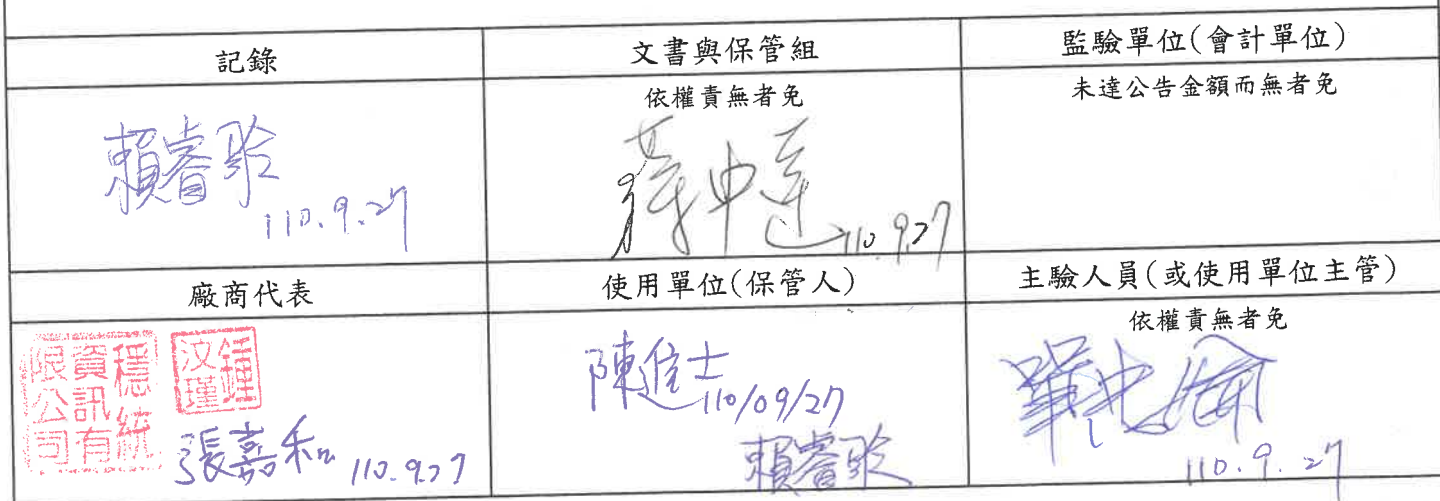 記錄
文書與保管組
監驗單位(會計單位)
賴睿
110.9.27
依權責無者免
中達
110.9.27
未達公告金額而無者免
廠商代表
使用單位(保管人)
主驗人員(或使用單位主管)
穩統
資訊有
限公司
鍾
汶瑾
張嘉和 110.9.27
陳進士 110/09/27
賴睿
依權責無者免
110.9.27